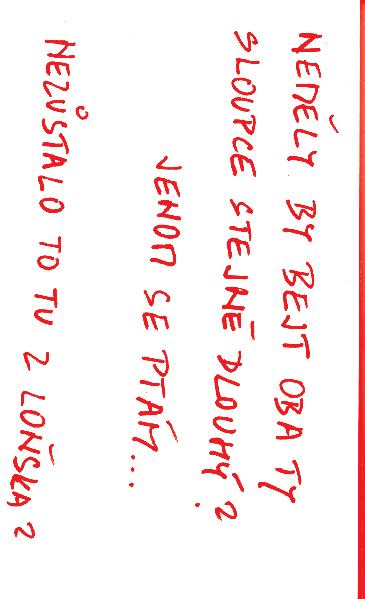 NEMĚLY BY BEJT OBA TY
SLOUPCE STEJNĚ DLOUHÝ?
JENOM SE PTÁM...
NEZŮSTALO TO TU Z LOŇSKA?